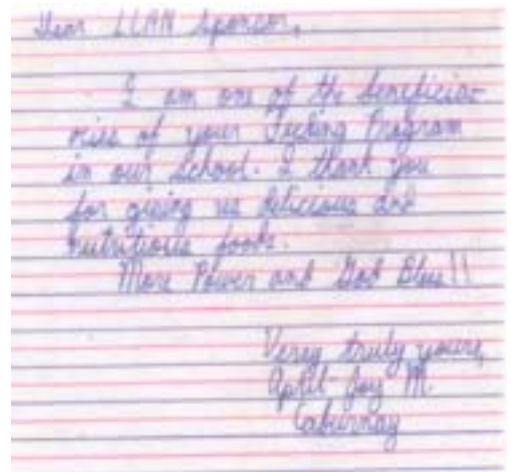 Dear LLAN Sponsor,
I am one of the beneficia-
ries of your Feeding Program
in our School. I thank you
for giving us delicious and
nutritious foods.
More Power and God Bless!!
Very truly yours,
April Joy M.